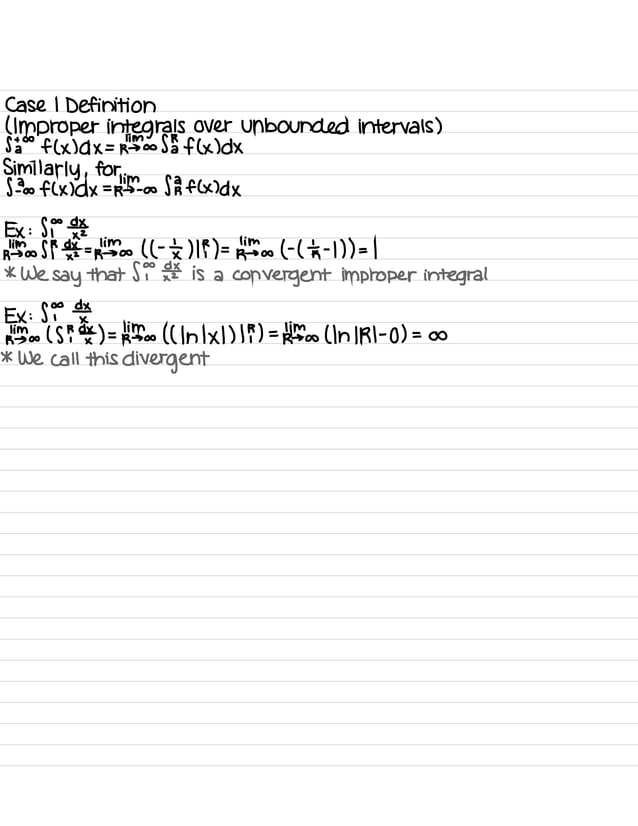 Case 1 Definition
(Improper integrals over unbounded intervals)
∫ₐ⁺∞ f(x)dx = lim R→∞ ∫ₐᴿ f(x)dx
Similarly, for
∫₋∞ᵃ f(x)dx = lim R→-∞ ∫ᴿᵃ f(x)dx
Ex: ∫₁∞ dx/x²
lim R→∞ ∫₁ᴿ dx/x² = lim R→∞ ((-1/x)|₁ᴿ) = lim R→∞ (-(1/R -1)) = 1
* We say that ∫₁∞ dx/x² is a convergent improper integral
Ex: ∫₁∞ dx/x
lim R→∞ (∫₁ᴿ dx/x) = lim R→∞ ((ln|x|)|₁ᴿ) = lim R→∞ (ln|R|-0) = ∞
* We call this divergent